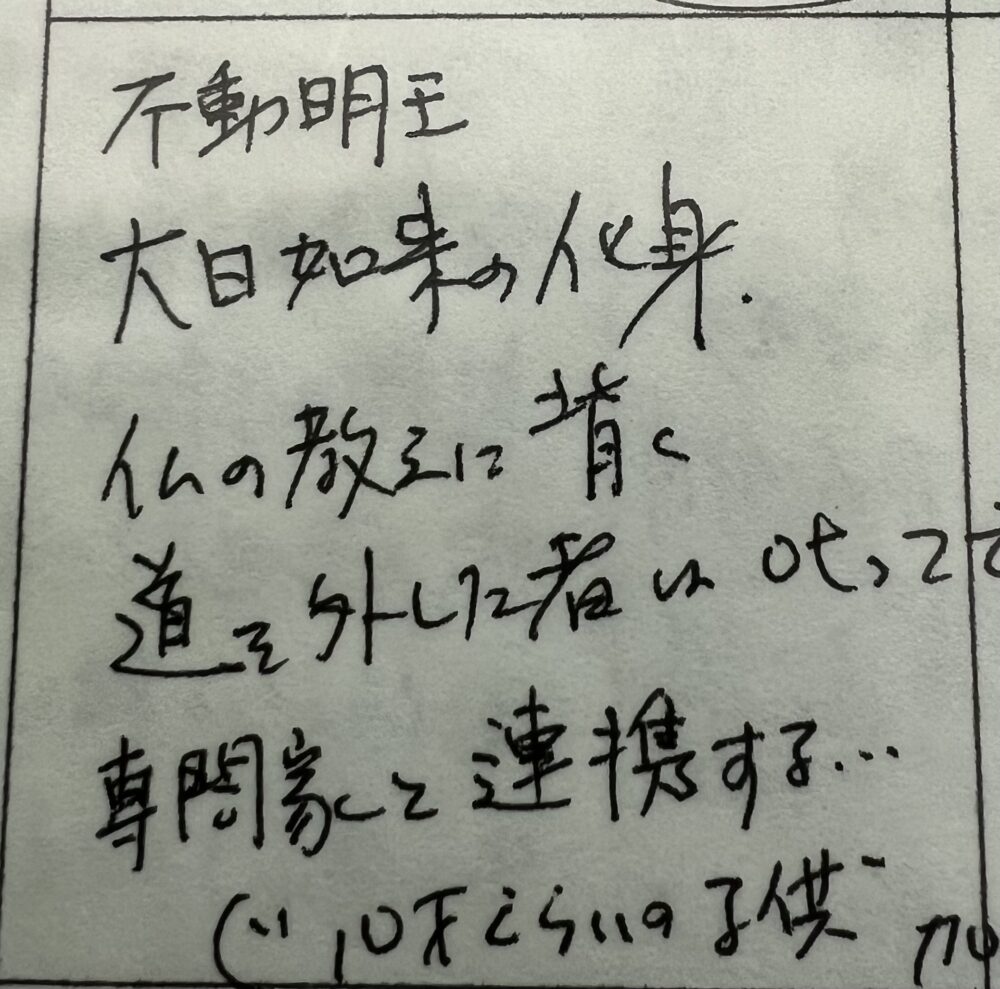 不動明王
大日如来の化身.
仏の教えに背く
道を外した者は 叱って
専門家と 連携する…
10才くらいの子供